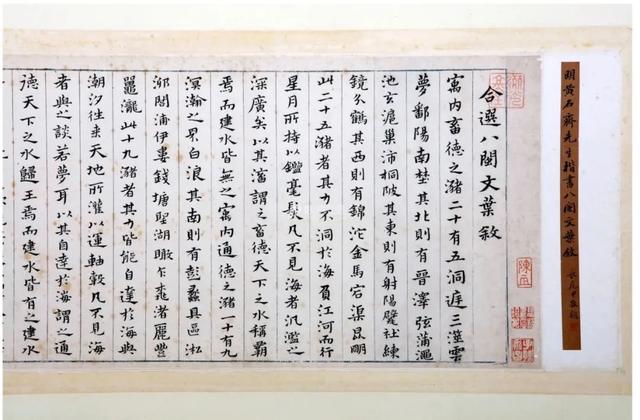 明黃石齋先生楷書八閩文葉敘
合選八閩文葉敘
寓內畜德之瀦二十有五洞庭三澨雲
夢鄱陽南埜其北則有晉澤弦蒲漚
池玄扈巢沛桐陂其東則有射陽甓社練
鏡久鶴其西則有錦沱金馬宕渠昆明
此二十五瀦者其力不洞於海負江河而行
星月所持以鑑毫髮凡不見海者汎濫之
深廣矣以其瀋謂之畜德天下之水稱霸
焉而建水皆無之寓內通德之瀦一十有九
溟瀚之界白浪其南則有彭蠡具區淞
泖閩浦伊婁錢塘聖湖瞰渚麗豐
鼉瀧此十九瀦者其力皆能自達於海與
潮汐往來天地所灌以運軸轂凡不見海
者與之談若夢耳以其自達於海謂之通
德天下之水歸王焉而建水皆有之建水